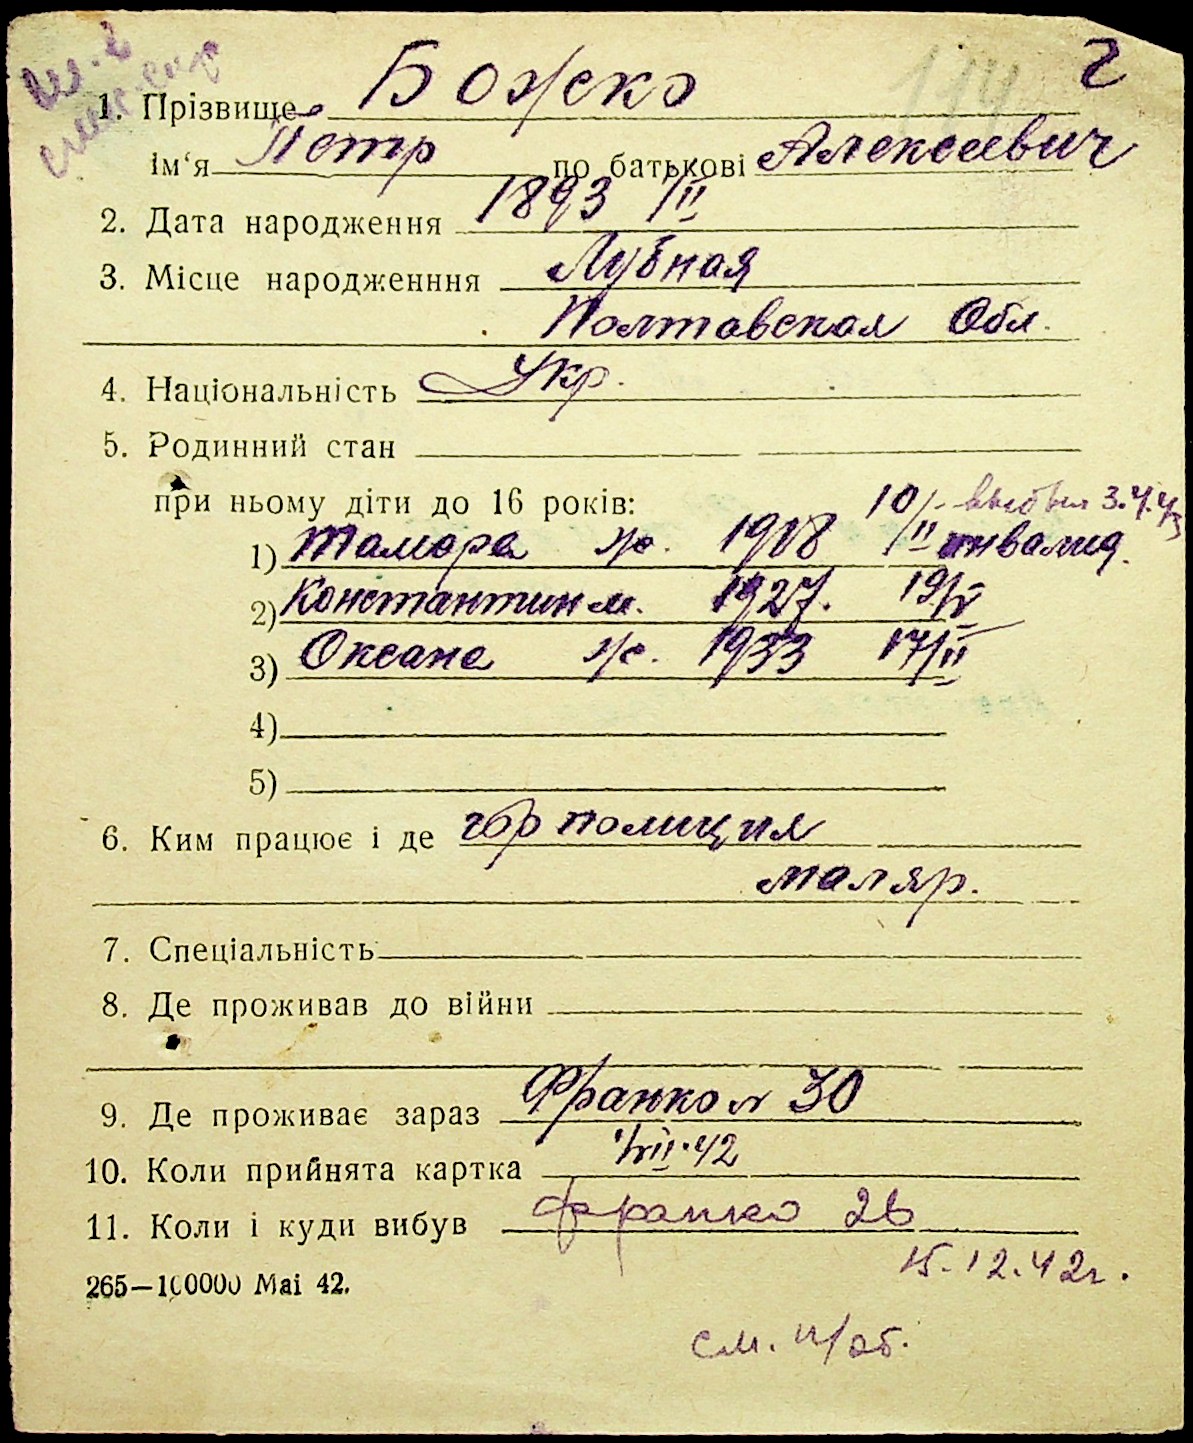 г
1. Прізвище Божко
ім'я Петр по батькові Алексеевич
2. Дата народження 1893 /II
3. Місце народженння Лубная
Полтавская Обл.
4. Національність Укр.
5. Родинний стан
при ньому діти до 16 років: 10/ выбыл 3.4.43
1) Тамара ж. 1918 /II инвалид.
2) Константин м. 1927. 19/V
3) Оксана ж. 1933 17/II
4)
5)
6. Ким працює і де гор полиция
маляр.
7. Спеціальність
8. Де проживав до війни
9. Де проживає зараз Франко 30
10. Коли прийнята картка 42
11. Коли і куди вибув франко 26
15.12.42г.
265—100000 Mai 42.
см. н/об.